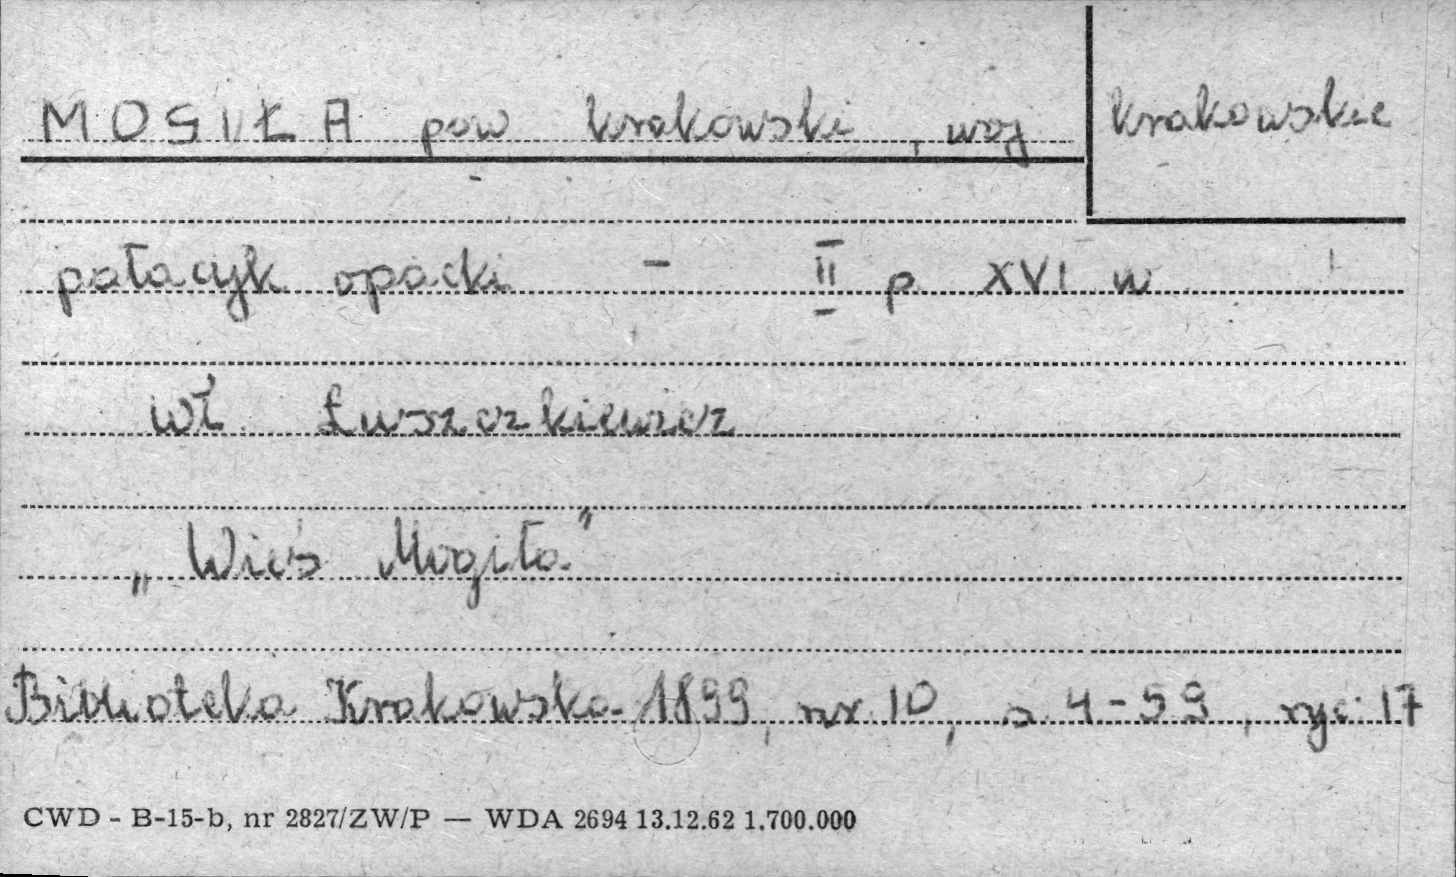 MOGIŁA pow krakowski, woj krakowskie
pałacyk opacki - II p. XVI w
Wł Łuszczkiewicz
„Wieś Mogiła"
Biblioteka Krakowska 1899, nr 10, s. 4-59, ryc. 17
CWD - B-15-b, nr 2827/ZW/P — WDA 2694 13.12.62 1.700.000